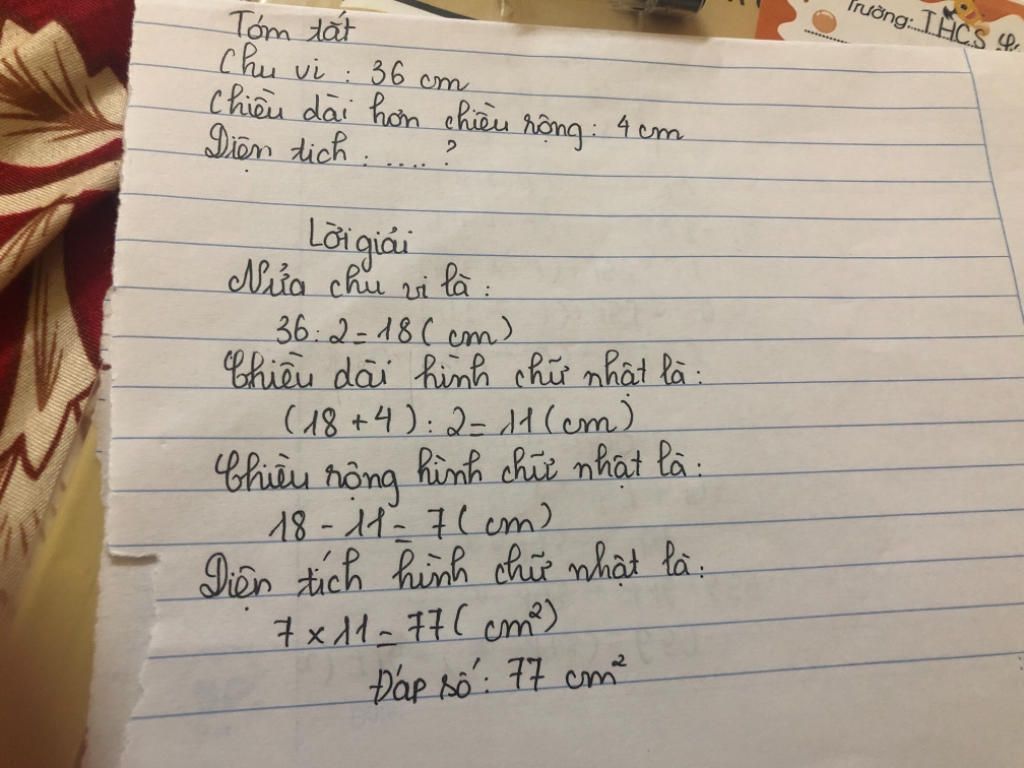 Trường:....THCS
Tóm tắt
Chu vi : 36 cm
Chiều dài hơn chiều rộng: 4 cm
Diện tích : .... ?
Lời giải
Nửa chu vi là :
36 : 2 = 18 ( cm )
Chiều dài hình chữ nhật là :
( 18 + 4 ) : 2 = 11 ( cm )
Chiều rộng hình chữ nhật là :
18 - 11 = 7 ( cm )
Diện tích hình chữ nhật là :
7 × 11 = 77 ( cm²)
Đáp số : 77 cm²